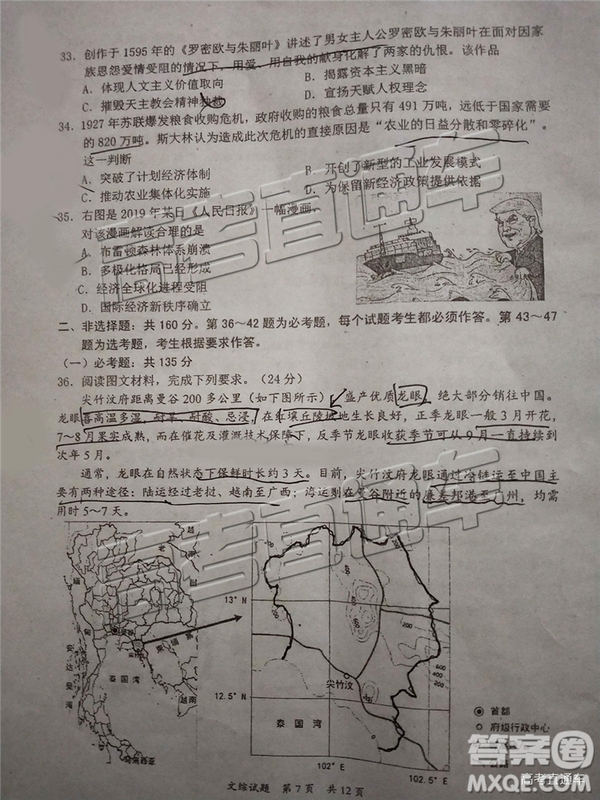 33. 创作于 1595 年的《罗密欧与朱丽叶》讲述了男女主人公罗密欧与朱丽叶在面对因家
族恩怨爱情受阻的情况下，用爱、用自我的献身化解了两家的仇恨。该作品
A. 体现人文主义价值取向 B. 揭露资本主义黑暗
C. 摧毁天主教会精神独裁 D. 宣扬天赋人权理念
34. 1927 年苏联爆发粮食收购危机，政府收购的粮食总量只有 491 万吨，远低于国家需要
的 820 万吨。斯大林认为造成此次危机的直接原因是“农业的日益分散和零碎化”。
这一判断
A. 突破了计划经济体制 B. 开创了新型的工业发展模式
C. 推动农业集体化实施 D. 为保留新经济政策提供依据
35. 右图是 2019 年某日《人民日报》一幅漫画，
对该漫画解读合理的是
A. 布雷顿森林体系崩溃
B. 多极化格局已经形成
C. 经济全球化进程受阻
D. 国际经济新秩序确立
二、非选择题：共 160 分。第 36～42 题为必考题，每个试题考生都必须作答。第 43～47
题为选考题，考生根据要求作答。
（一）必考题：共 135 分
36. 阅读图文材料，完成下列要求。（24 分）
尖竹汶府距离曼谷 200 多公里（如下图所示），盛产优质龙眼，绝大部分销往中国。
龙眼喜高温多湿，耐旱、耐酸、忌浸，在 填丘陵坡地生长良好，正季龙眼一般 3 月开花，
7～8 月果实成熟，而在催花及灌溉技术保障下，反季节龙眼收获季节可从 9 月一直持续到
次年 5 月。
通常，龙眼在自然状态下保鲜时长约 3 天。目前，尖竹汶府龙眼通过冷链运至中国主
要有两种途径：陆运经过老挝、越南至广西；海运则在曼谷附近的廉差邦港至广州，均需
用时 5～7 天。
缅
甸
老
挝
越南
柬埔寨
安达曼海
泰国湾
马来西亚
13°N
12.5°N
尖竹汶
泰国湾
102°E
102.5°E
200
400
600
首都
府级行政中心
文综试题 第 7 页 共 12 页
高考直通车
答案卷
MXQE.COM
高考直通车